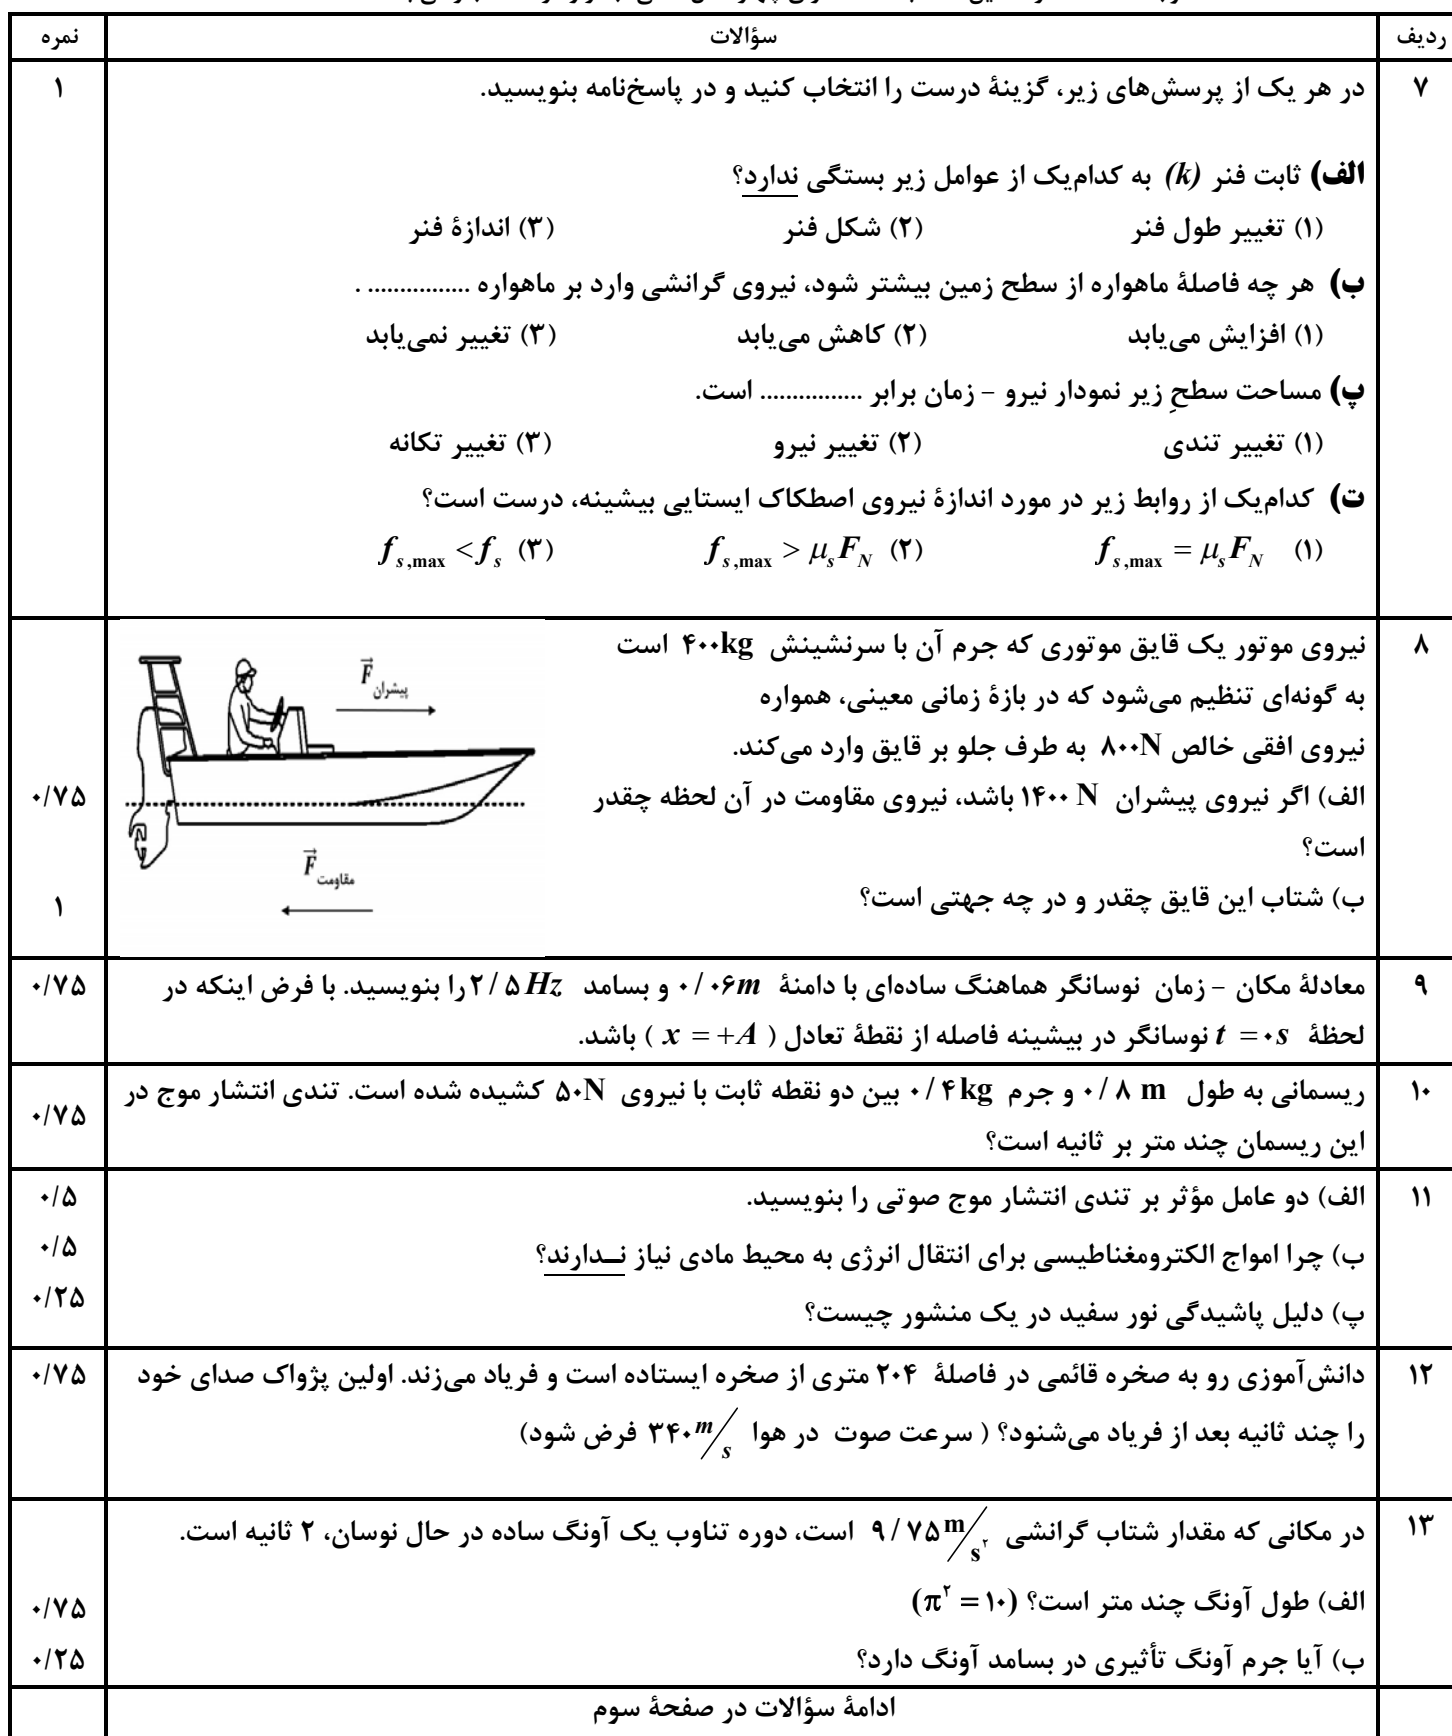 ردیف	سؤالات	نمره
۷	در هر یک از پرسش‌های زیر، گزینهٔ درست را انتخاب کنید و در پاسخ‌نامه بنویسید.	۱
الف) ثابت فنر (k) به کدام‌یک از عوامل زیر بستگی ندارد؟
(۱) تغییر طول فنر	(۲) شکل فنر	(۳) اندازهٔ فنر
ب) هر چه فاصلهٔ ماهواره از سطح زمین بیشتر شود، نیروی گرانشی وارد بر ماهواره ................ .
(۱) افزایش می‌یابد	(۲) کاهش می‌یابد	(۳) تغییر نمی‌یابد
پ) مساحت سطحِ زیر نمودار نیرو – زمان برابر ................ است.
(۱) تغییر تندی	(۲) تغییر نیرو	(۳) تغییر تکانه
ت) کدام‌یک از روابط زیر در مورد اندازهٔ نیروی اصطکاک ایستایی بیشینه، درست است؟
(۱) f_{s,max} = μ_s F_N	(۲) f_{s,max} > μ_s F_N	(۳) f_{s,max} < f_s
۸	نیروی موتور یک قایق موتوری که جرم آن با سرنشینش ۴۰۰kg است
به گونه‌ای تنظیم می‌شود که در بازهٔ زمانی معینی، همواره
نیروی افقی خالص ۸۰۰N به طرف جلو بر قایق وارد می‌کند.
الف) اگر نیروی پیشران ۱۴۰۰ N باشد، نیروی مقاومت در آن لحظه چقدر	۰/۷۵
است؟
ب) شتاب این قایق چقدر و در چه جهتی است؟	۱
F⃗ پیشران
F⃗ مقاومت
۹	معادلهٔ مکان – زمان نوسانگر هماهنگ ساده‌ای با دامنهٔ ۰/۰۶m و بسامد ۲/۵Hz را بنویسید. با فرض اینکه در	۰/۷۵
لحظهٔ t = ۰s نوسانگر در بیشینه فاصله از نقطهٔ تعادل ( x = +A ) باشد.
۱۰	ریسمانی به طول ۰/۸ m و جرم ۰/۴kg بین دو نقطه ثابت با نیروی ۵۰N کشیده شده است. تندی انتشار موج در	۰/۷۵
این ریسمان چند متر بر ثانیه است؟
۱۱	الف) دو عامل مؤثر بر تندی انتشار موج صوتی را بنویسید.	۰/۵
ب) چرا امواج الکترومغناطیسی برای انتقال انرژی به محیط مادی نیاز نــدارند؟	۰/۵
پ) دلیل پاشیدگی نور سفید در یک منشور چیست؟	۰/۲۵
۱۲	دانش‌آموزی رو به صخره قائمی در فاصلهٔ ۲۰۴ متری از صخره ایستاده است و فریاد می‌زند. اولین پژواک صدای خود	۰/۷۵
را چند ثانیه بعد از فریاد می‌شنود؟ ( سرعت صوت در هوا ۳۴۰ m/s فرض شود)
۱۳	در مکانی که مقدار شتاب گرانشی ۹/۷۵ m/s² است، دوره تناوب یک آونگ ساده در حال نوسان، ۲ ثانیه است.
الف) طول آونگ چند متر است؟ (π² = ۱۰)	۰/۷۵
ب) آیا جرم آونگ تأثیری در بسامد آونگ دارد؟	۰/۲۵
ادامهٔ سؤالات در صفحهٔ سوم